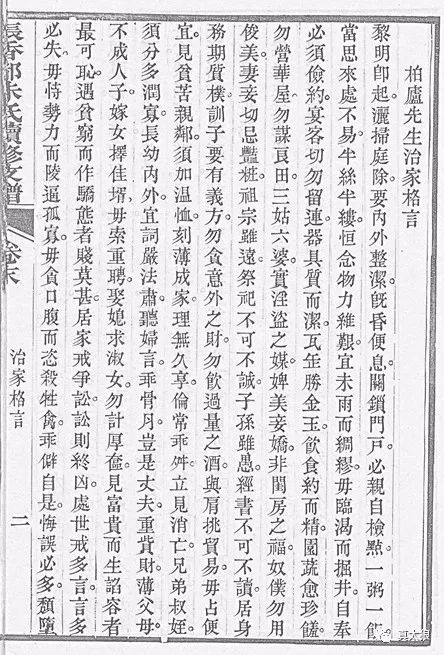 柏廬先生治家格言
黎明卽起。灑掃庭除。要內外整潔。旣昏便息。關鎖門戸。必親自檢點。一粥一飯
當思來處不易。半絲半縷。恒念物力維艱。宜未雨而綢繆。毋臨渴而掘井。自奉
必須儉約。宴客切勿留連。器具質而潔。瓦缶勝金玉。飮食約而精。園蔬愈珍饈。
勿營華屋。勿謀良田。三姑六婆。實淫盜之媒。婢美妾嬌。非閨房之福。奴僕勿用
俊美。妻妾切忌艷粧。祖宗雖遠。祭祀不可不誠。子孫雖愚。經書不可不讀。居身
務期質樸。訓子要有義方。勿貪意外之財。勿飮過量之酒。與肩挑貿易。毋占便
宜。見貧苦親鄰。須加温恤。刻薄成家。理無久享。倫常乖舛。立見消亡。兄弟叔姪。
須分多潤寡。長幼內外。宜詞嚴法肅。聽婦言。乖骨肉。豈是丈夫。重貲財。薄父母。
不成人子。嫁女擇佳壻。毋索重聘。娶媳求淑女。勿計厚奩。見富貴而生諂容者
最可恥。遇貧窮而作驕態者賤莫甚。居家戒爭訟。訟則終凶。處世戒多言。言多
必失。毋恃勢力而陵逼孤寡。毋貪口腹而恣殺牲禽。乖僻自是。悔誤必多。頽墮
朱氏續修支譜
卷末
治家格言
二